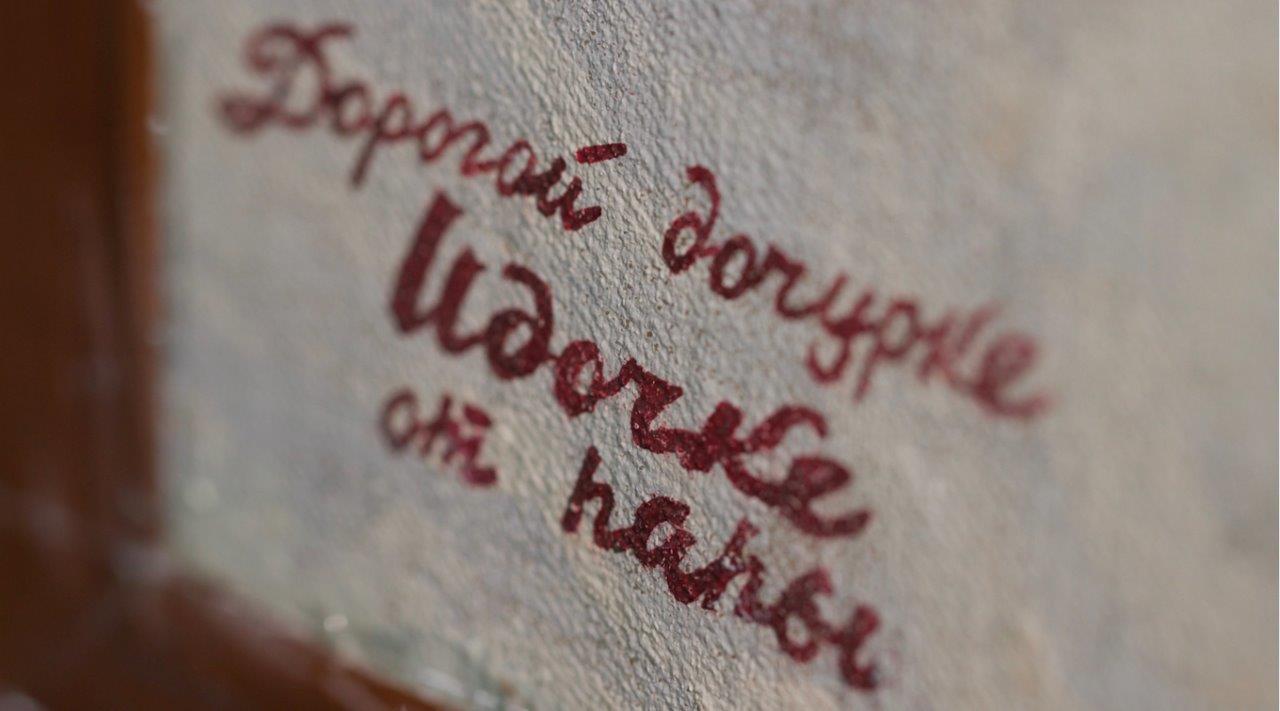 Дорогой дочурке
Идочке
от папы